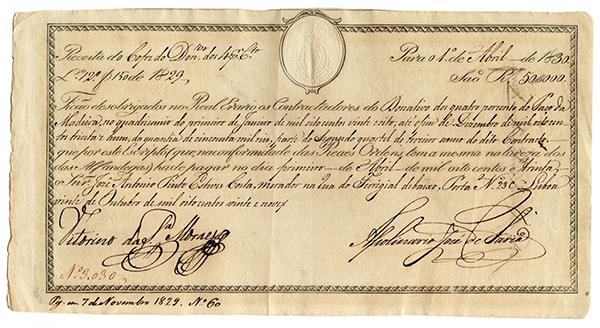 Receita do Cofre do Don.vo do 4 p.r C.to Para o 1.º de Abril de 1830
L.º 72 de 1829 Saõ R.s 50$000
Ficaõ desobrigados no Real Erario os Contractadores do Donativo dos quatro porcento do Paço da
Madeira, no quadriennio do primeiro de Janeiro de mil oito centos vinte oito, até o fim de Dezembro de mil oito cen-
tos trinta e hum, da quantia de cincoenta mil reis, parte do segundo quartel do terceiro anno do dito Contracto
que por este Escripto (que, na conformidade das Reaes Ordens, tem a mesma natureza dos
das Alfandegas) ha de pagar no dia primeiro de Abril de mil oito centos e trinta
o Sn.r José Antonio Pinto Esteves Costa, morador na Rua do Ferrigial debaixo, Porta N. 23 C. Lisboa
vinte de Outubro de mil oito centos vinte e nove
Vitorino da S.a Moraes Apolinario José de Faria
N.º 3.030
Pg. em 7 de Novembro 1829. N.º 60